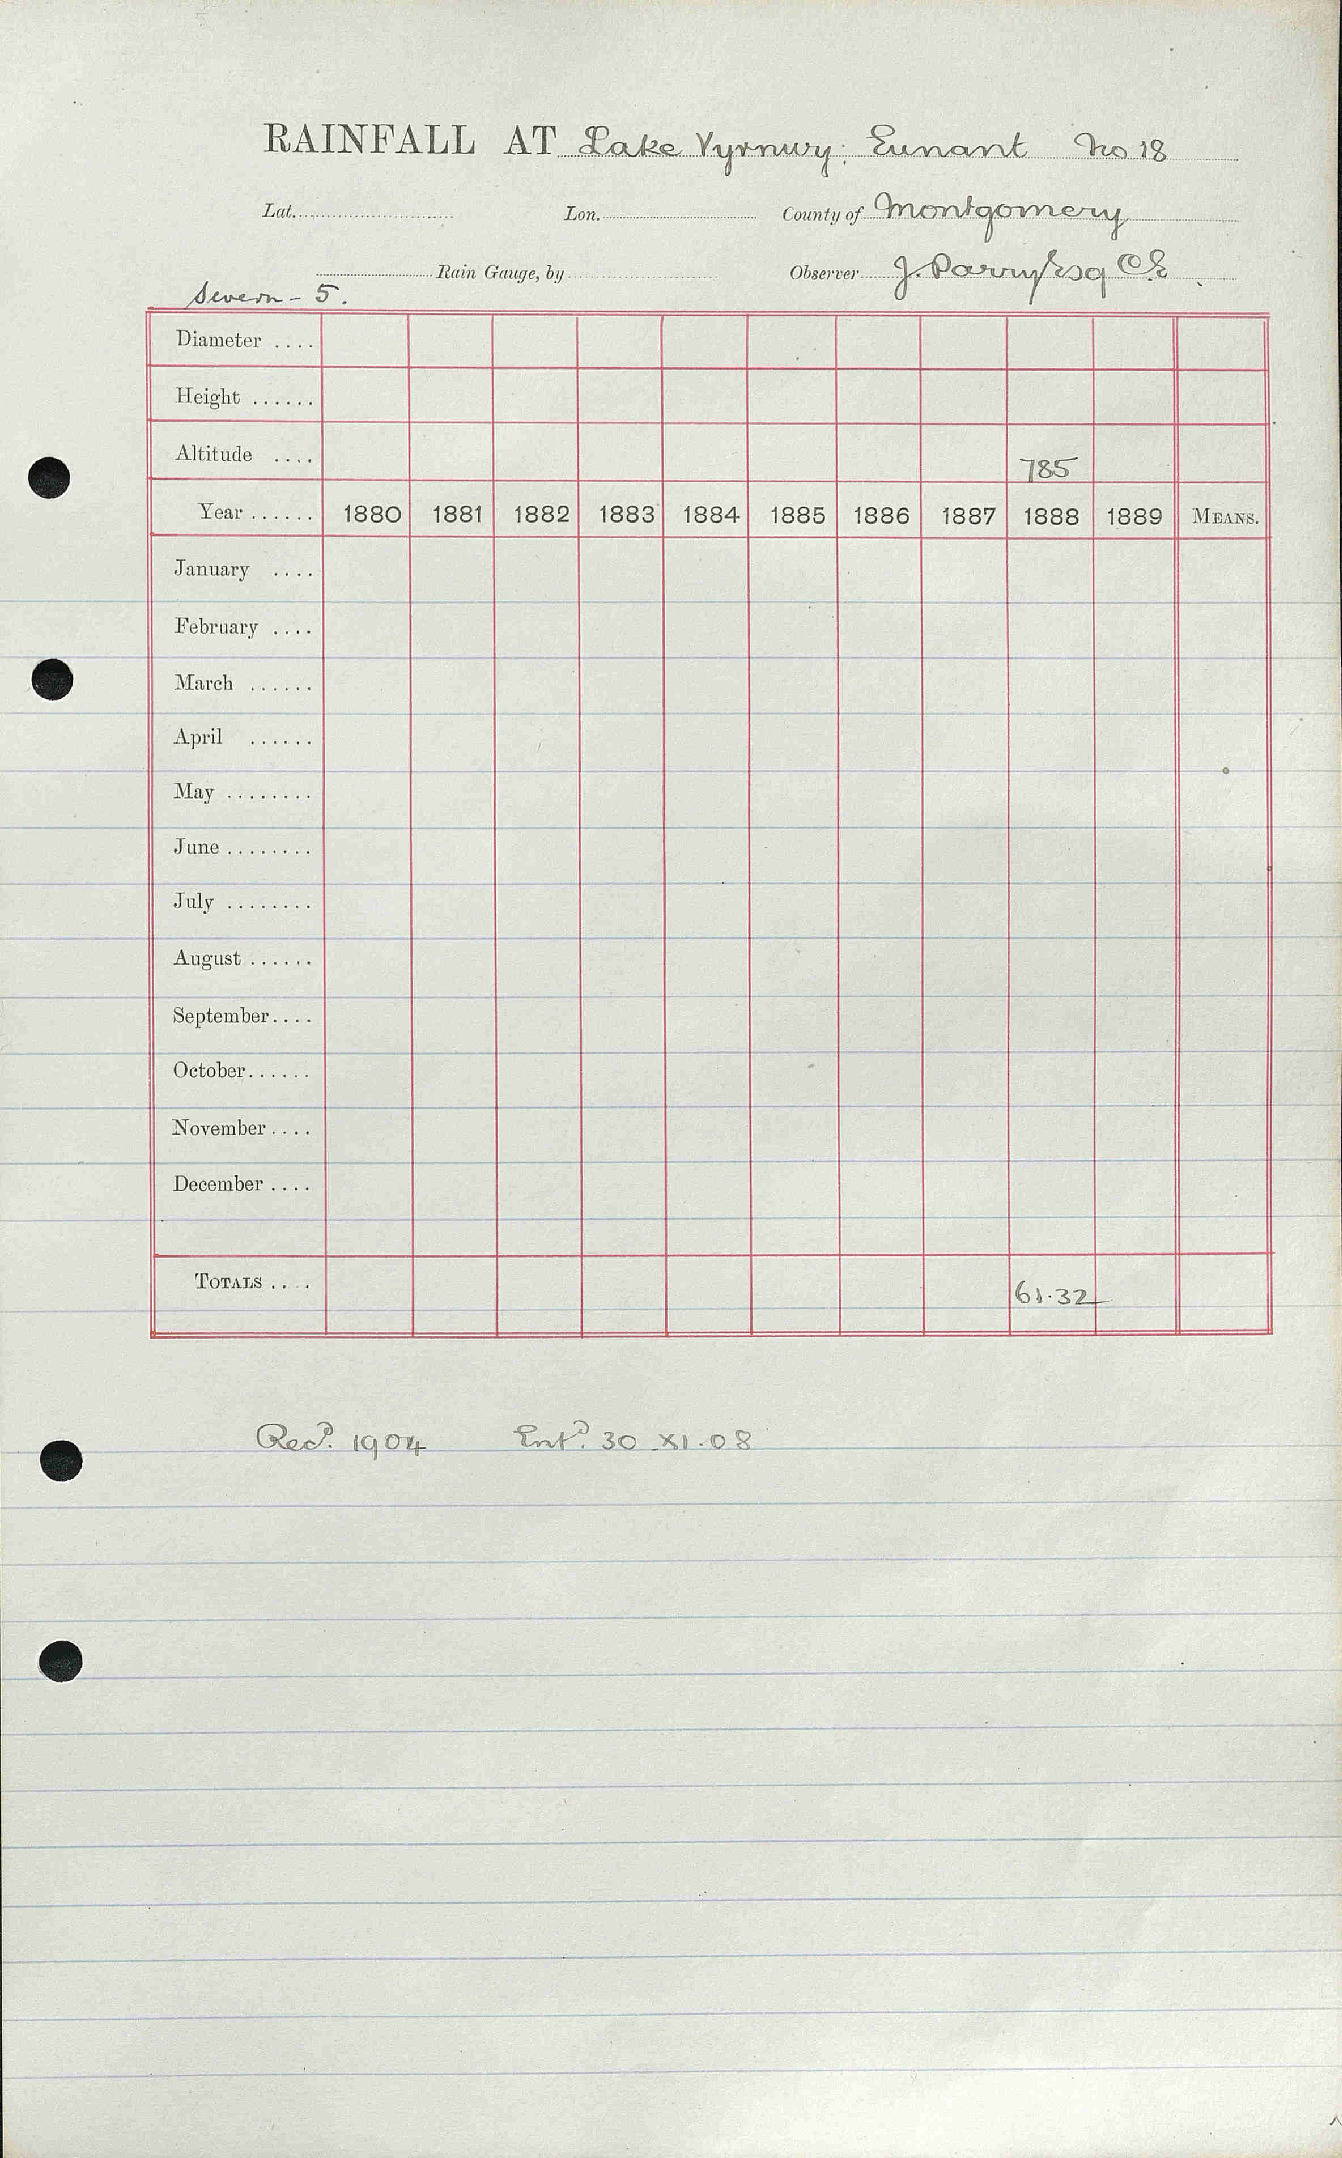 RAINFALL AT Lake Vyrnwy: Eunant No 18
Lat. Lon. County of Montgomery
Rain Gauge, by Observer J. Parry Esq C.E.
Severn - 5.
Diameter ....
Height ......
Altitude .... 785
Year ...... 1880 1881 1882 1883 1884 1885 1886 1887 1888 1889 MEANS.
January ....
February ....
March ......
April ......
May ........
June ........
July ........
August ......
September ....
October ......
November ....
December ....
TOTALS .... 61.32
Recd. 1904 Entd. 30 XI.08